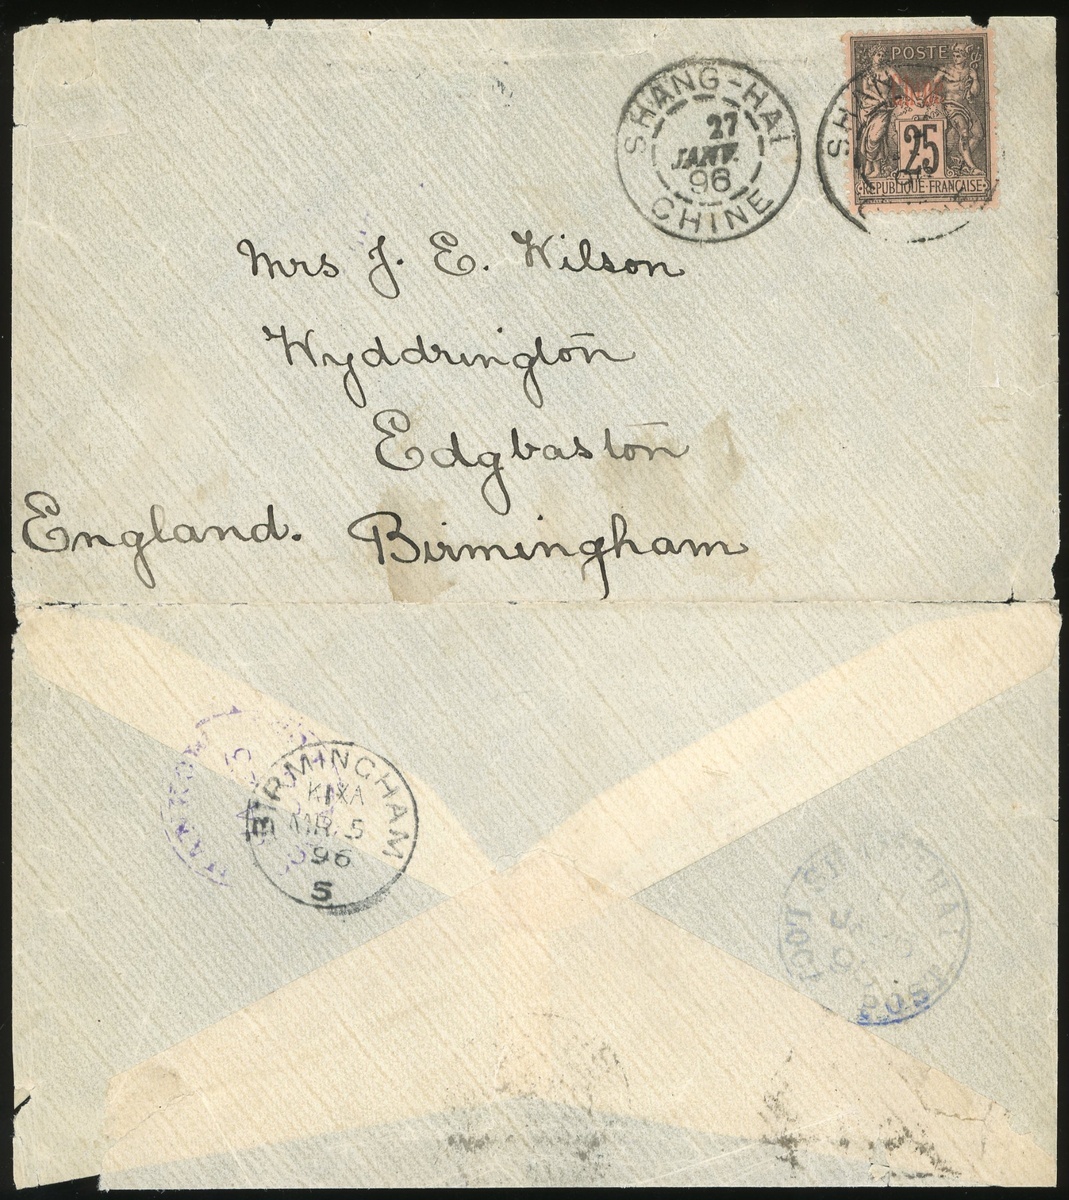 POSTE
25
REPUBLIQUE FRANÇAISE
SHANG-HAI
27
JANV.
96
CHINE
Mrs J. E. Wilson
Wyddrington
Edgbaston
England. Birmingham
BIRMINGHAM
MR. 5
96
5
LOCAL POST